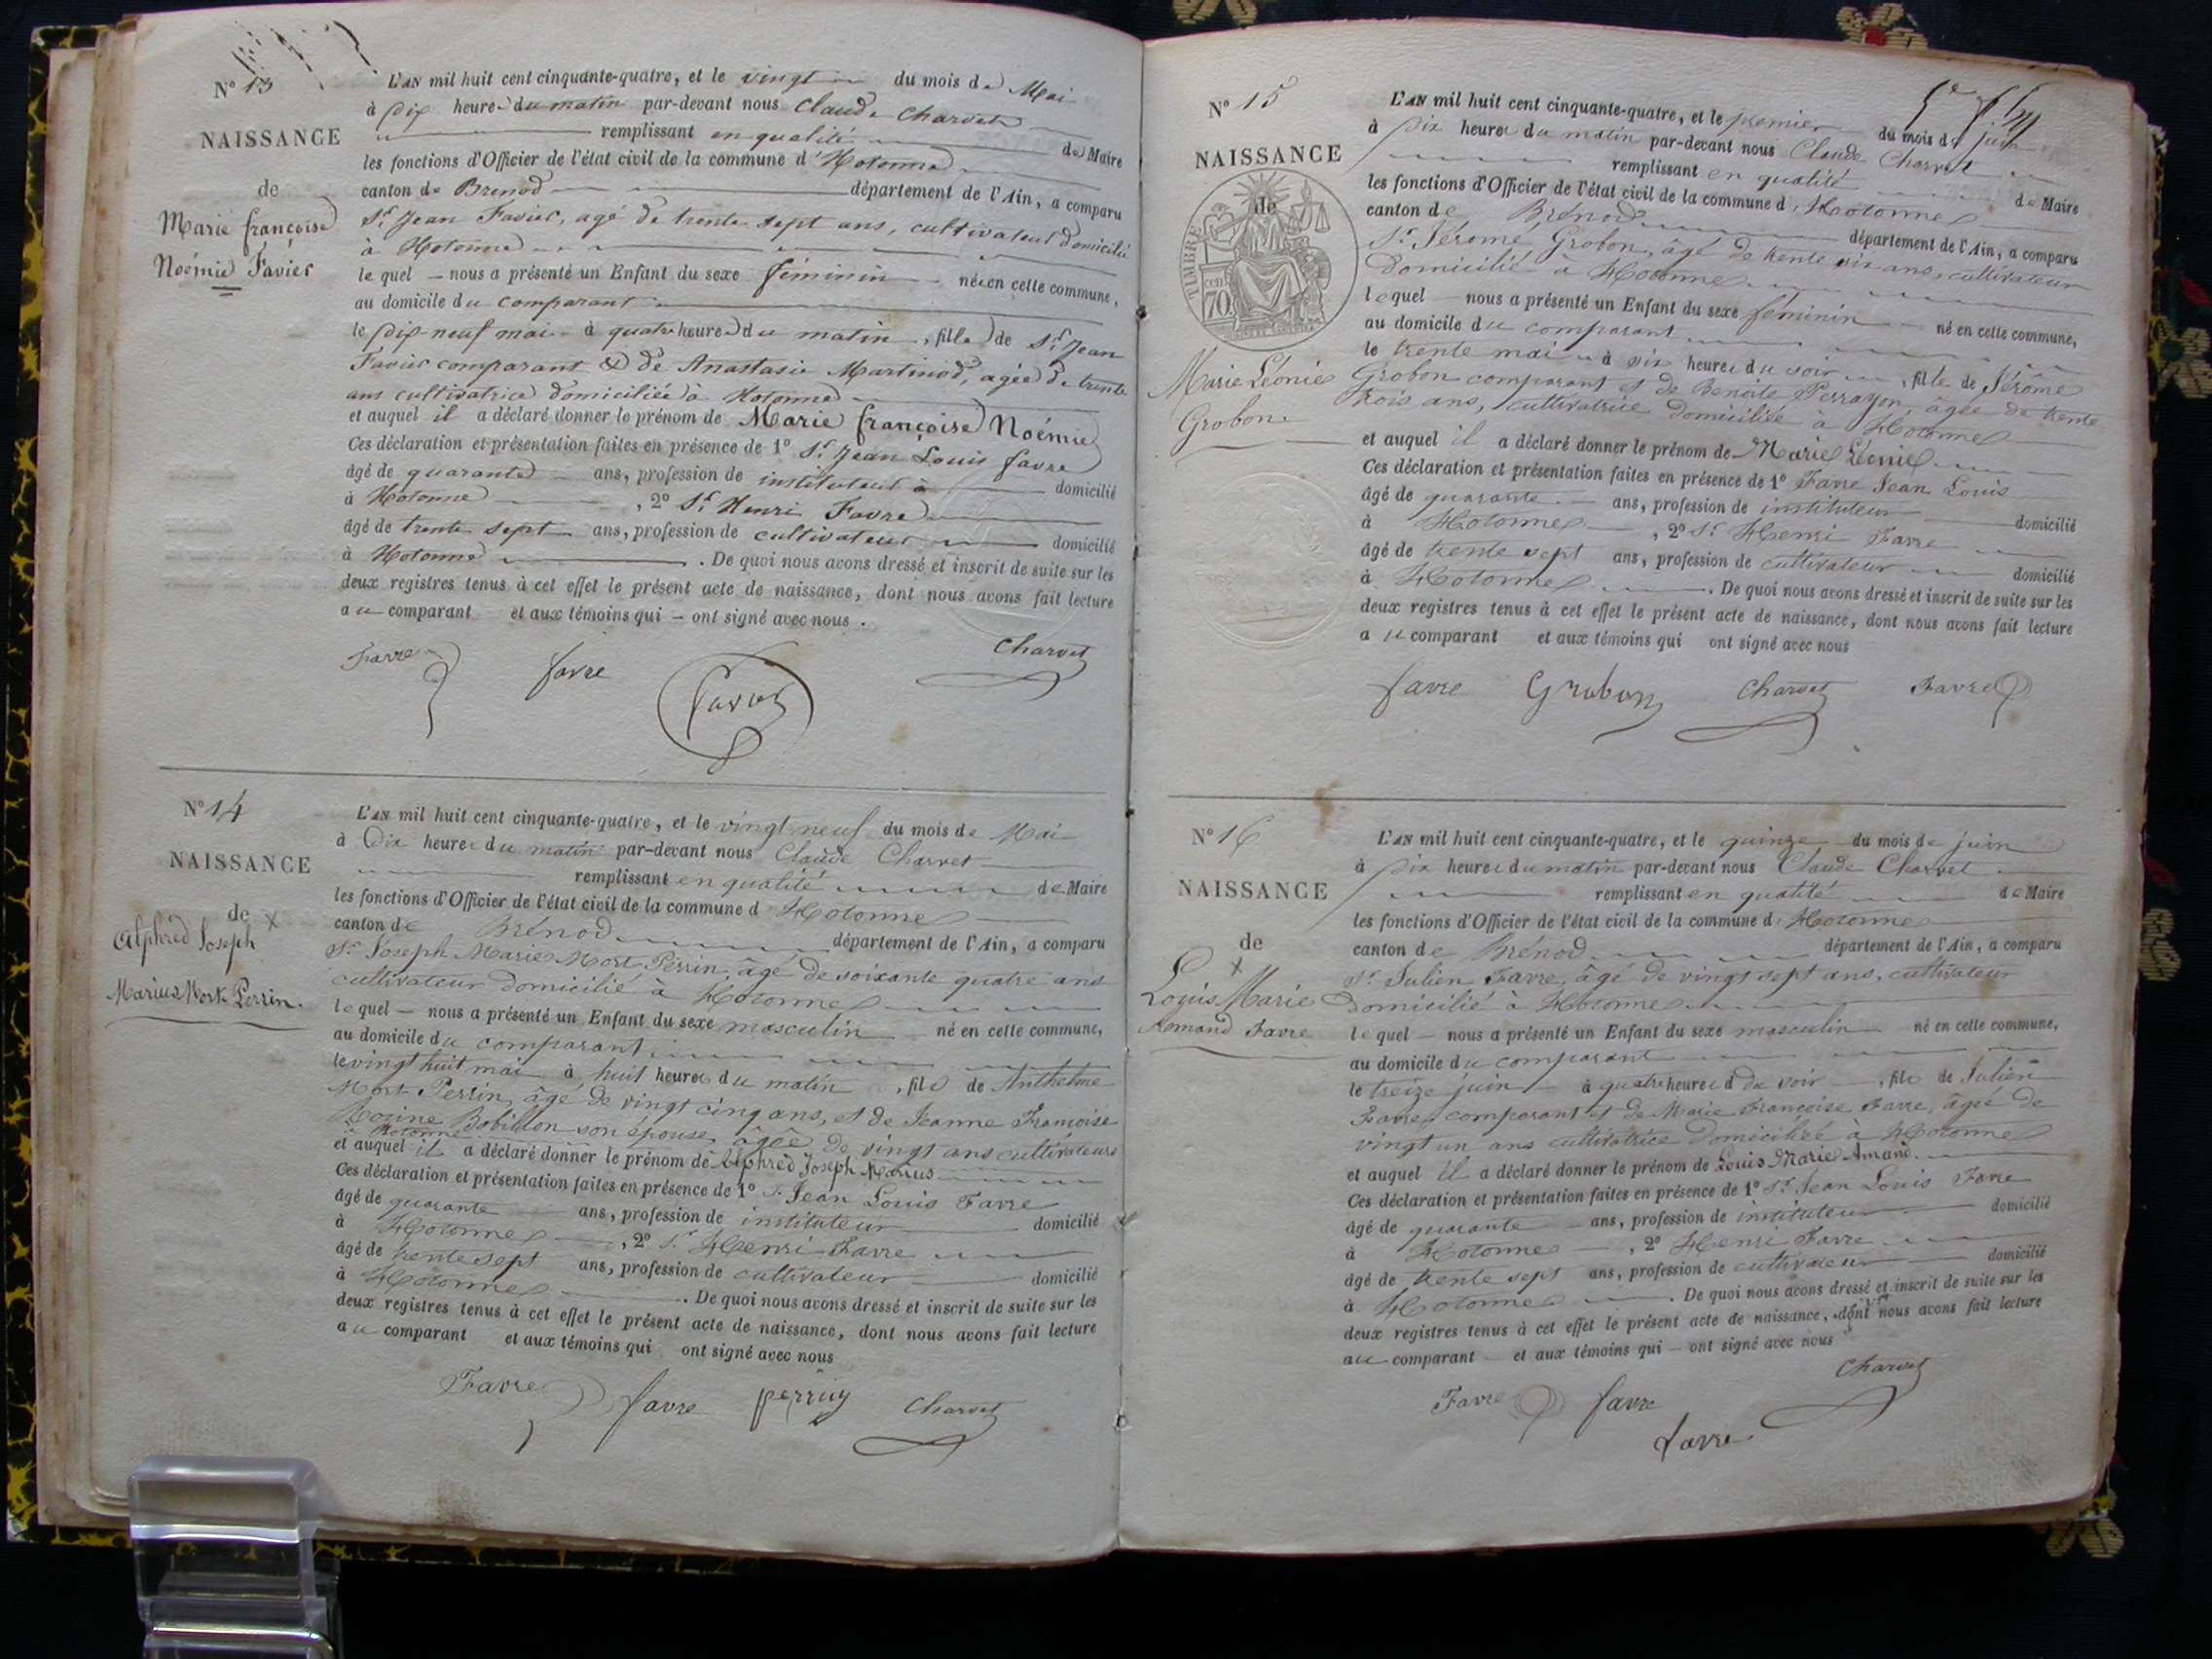 N° 13
NAISSANCE
de
Marie françoise
Noémie Favier
L'AN mil huit cent cinquante-quatre, et le vingt du mois de Mai
à dix heure du matin par-devant nous Claude Charvet
remplissant en qualité de Maire
les fonctions d'Officier de l'état civil de la commune d'Hotonne
canton de Brenod département de l'Ain, a comparu
Sr. Jean Favier, agé de trente sept ans, cultivateur domicilié
à Hotonne
le quel nous a présenté un Enfant du sexe féminin né en cette commune,
au domicile du comparant
le dix-neuf mai à quatre heure du matin, fille de Sr. Jean
Favier comparant & de Anastasie Martinod, agée de trente
ans cultivatrice domiciliée à Hotonne
et auquel il a déclaré donner le prénom de Marie françoise Noémie
Ces déclaration et présentation faites en présence de 1° Sr. Jean Louis favre
âgé de quarante ans, profession de instituteur à domicilié
à Hotonne, 2° Sr. Henri Favre
âgé de trente sept ans, profession de cultivateur domicilié
à Hotonne. De quoi nous avons dressé et inscrit de suite sur les
deux registres tenus à cet effet le présent acte de naissance, dont nous avons fait lecture
au comparant et aux témoins qui ont signé avec nous.
Favre favre Favier Charvet
N° 14
NAISSANCE
de
Alphred Joseph
Marius Mort Perrin.
L'AN mil huit cent cinquante-quatre, et le vingt neuf du mois de Mai
à Dix heures du matin par-devant nous Claude Charvet
remplissant en qualité de Maire
les fonctions d'Officier de l'état civil de la commune d Hotonne
canton de Brénod département de l'Ain, a comparu
Sr. Joseph Marie Mort Perrin, âgé de soixante quatre ans
cultivateur domicilié à Hotonne
le quel nous a présenté un Enfant du sexe masculin né en cette commune,
au domicile du comparant
le vingt huit mai à huit heures du matin, fils de Anthelme
Mort Perrin, âgé de vingt cinq ans, et de Jeanne Françoise
Bobillon son épouse, âgée de vingt ans cultivateurs
à Hotonne
et auquel il a déclaré donner le prénom de Alphred Joseph Marius
Ces déclaration et présentation faites en présence de 1° Sr. Jean Louis Favre
âgé de quarante ans, profession de instituteur domicilié
à Hotonne, 2° Sr. Henri Favre
âgé de trente sept ans, profession de cultivateur domicilié
à Hotonne. De quoi nous avons dressé et inscrit de suite sur les
deux registres tenus à cet effet le présent acte de naissance, dont nous avons fait lecture
au comparant et aux témoins qui ont signé avec nous
Favre favre perrin Charvet
N° 15
NAISSANCE
de
TIMBRE
70
Marie Léonie
Grobon.
L'AN mil huit cent cinquante-quatre, et le premier du mois de juin
à Dix heures du matin par-devant nous Claude Charvet
remplissant en qualité de Maire
les fonctions d'Officier de l'état civil de la commune d'Hotonne
canton de Brénod département de l'Ain, a comparu
Sr. Jérome Grobon, âgé de trente six ans, cultivateur
domicilié à Hotonne
lequel nous a présenté un Enfant du sexe féminin né en cette commune,
au domicile du comparant
le trente mai à six heures du soir, fille de Jérôme
Grobon comparant et de Benoite Perrayon, âgée de trente
trois ans, cultivatrice domiciliée à Hotonne
et auquel il a déclaré donner le prénom de Marie Léonie
Ces déclaration et présentation faites en présence de 1° Favre Jean Louis
âgé de quarante ans, profession de instituteur domicilié
à Hotonne, 2° Sr. Henri Favre
âgé de trente sept ans, profession de cultivateur domicilié
à Hotonne. De quoi nous avons dressé et inscrit de suite sur les
deux registres tenus à cet effet le présent acte de naissance, dont nous avons fait lecture
au comparant et aux témoins qui ont signé avec nous
favre Grobon Charvet Favre
N° 16
NAISSANCE
de
Louis Marie
Armand Favre
L'AN mil huit cent cinquante-quatre, et le quinze du mois de juin
à Dix heures du matin par-devant nous Claude Charvet
remplissant en qualité de Maire
les fonctions d'Officier de l'état civil de la commune d'Hotonne
canton de Brénod département de l'Ain, a comparu
Sr. Julien Favre, âgé de vingt sept ans, cultivateur
domicilié à Hotonne
le quel nous a présenté un Enfant du sexe masculin né en cette commune,
au domicile du comparant
le treize juin à quatre heures du soir, fils de Julien
Favre, comparant et de Marie Françoise Favre, âgée de
vingt un ans cultivatrice domiciliée à Hotonne
et auquel il a déclaré donner le prénom de Louis Marie Amand.
Ces déclaration et présentation faites en présence de 1° Sr. Jean Louis Favre
âgé de quarante ans, profession de instituteur domicilié
à Hotonne, 2° Henri Favre
âgé de trente sept ans, profession de cultivateur domicilié
à Hotonne. De quoi nous avons dressé et inscrit de suite sur les
deux registres tenus à cet effet le présent acte de naissance, dont nous avons fait lecture
au comparant et aux témoins qui ont signé avec nous
Favre favre Charvet
favre